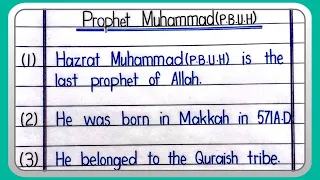 Prophet Muhammad(P.B.U.H)
(1) Hazrat Muhammad(P.B.U.H) is the
last prophet of Allah.
(2) He was born in Makkah in 571A.D
(3) He belonged to the Quraish tribe.